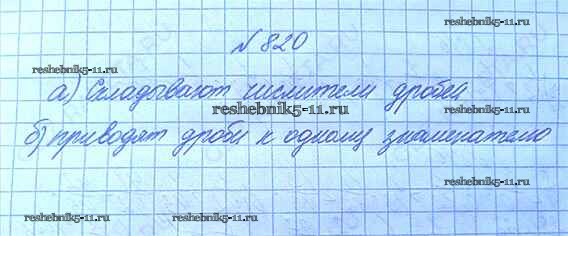 №820
reshebnik5-11.ru reshebnik5-11.ru
а) Складывают числители дробей
reshebnik5-11.ru
б) приводят дроби к одному знаменателю
reshebnik5-11.ru reshebnik5-11.ru
reshebnik5-11.ru